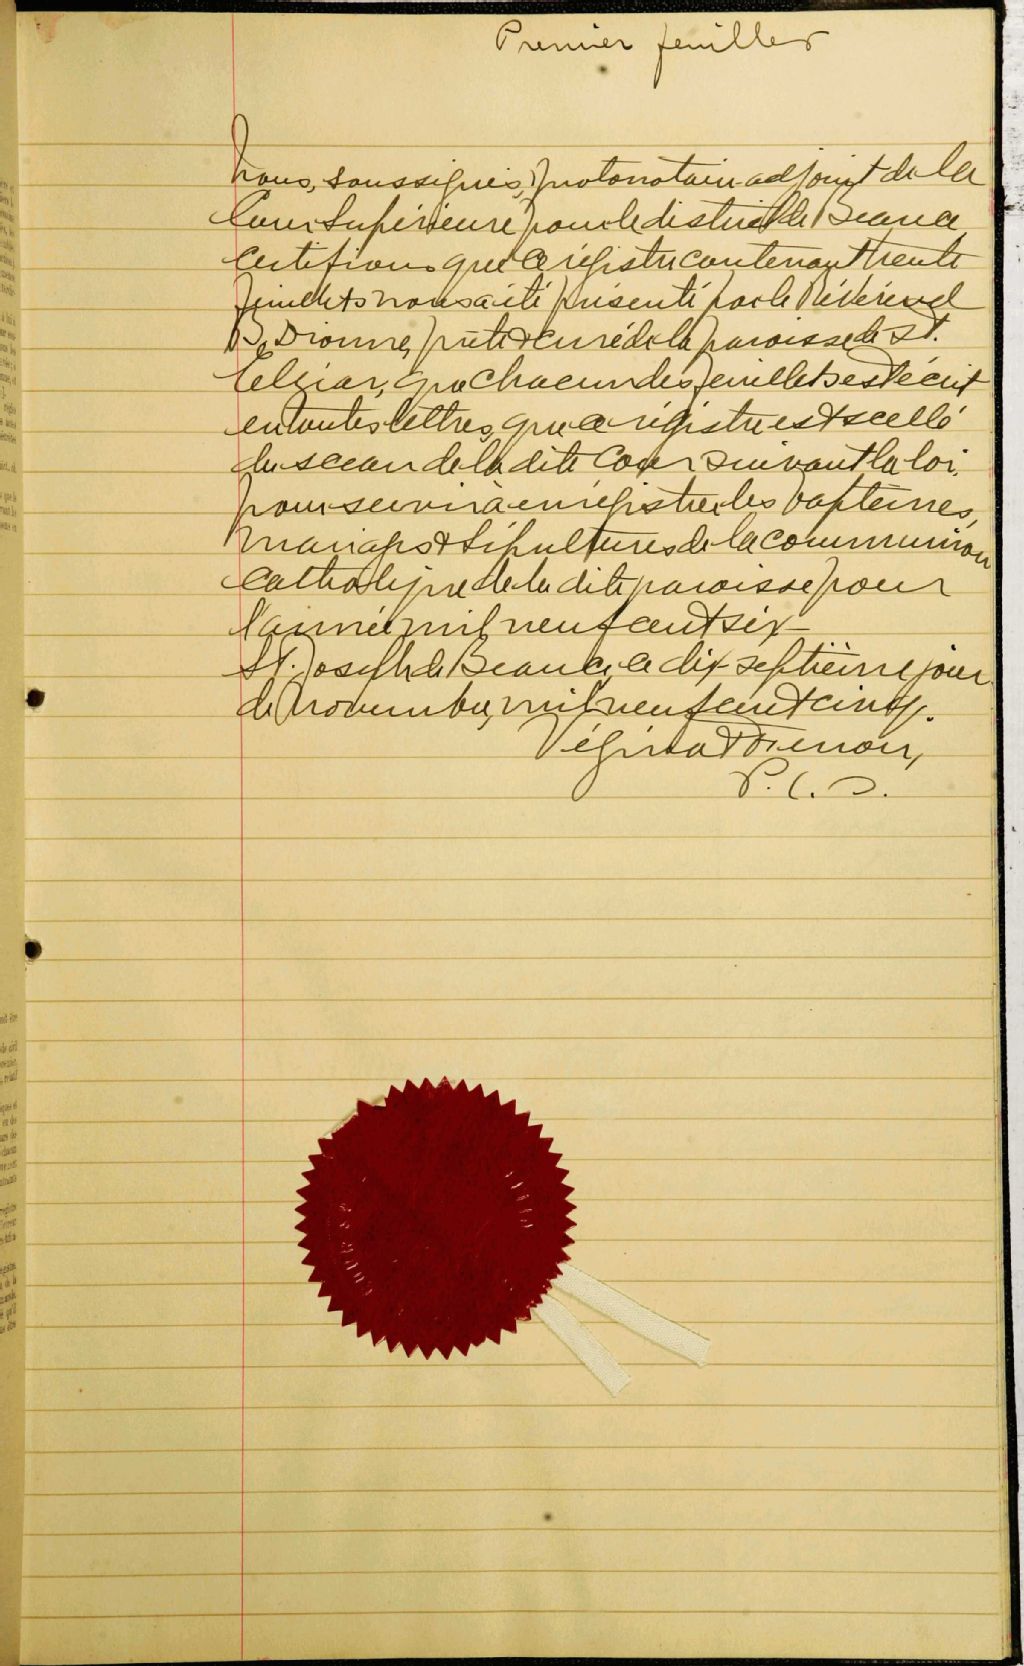 Premier feuillet
Nous, soussignés, protonotaire adjoint de la
Cour Supérieure pour le district de Beauce
certifions que ce régistre contenant trente
feuillets nous a été présenté par le Révérend
B. Dionne, prêtre & curé de la paroisse de St.
Elzéar, que chacun des feuillets est écrit
en toutes lettres, que ce régistre est scellé
du sceau de la dite Cour suivant la loi,
pour servir à enrégistrer les baptêmes,
mariages & sépultures de la communion
Catholique de la dite paroisse pour
l'année mil neuf cent six
St. Joseph de Beauce, ce dix-septième jour
de novembre, mil neuf cent cinq.
Vézina &
P. C. S.